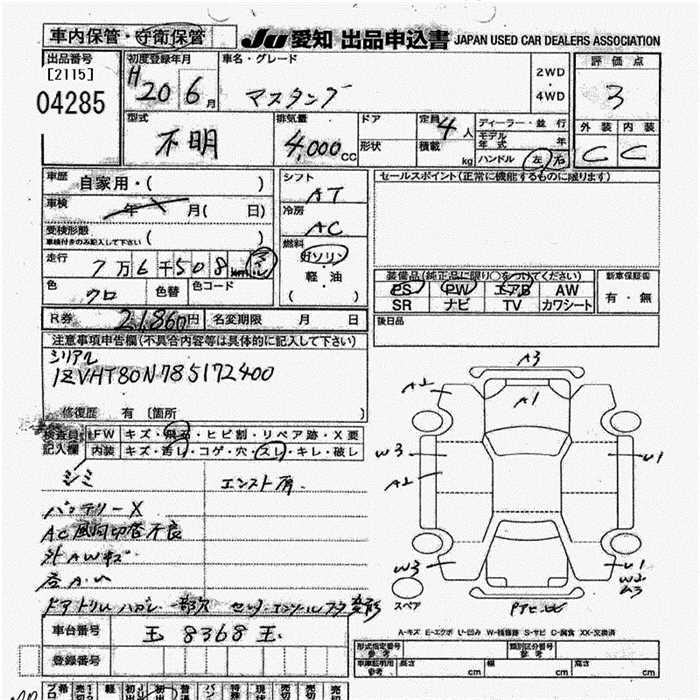 車内保管・守衛保管
JU 愛知 出品申込書 JAPAN USED CAR DEALERS ASSOCIATION
出品番号
[2115]
04285
初度登録年月
H20 6月
車名・グレード
マスタング
2WD
・
4WD
評価点
3
型式
不明
排気量
4,000cc
ドア
形状
定員 4人
積載 kg
ディーラー・並行
モデル年式 年
ハンドル 左・右
外装 内装
C C
車歴 自家用・( )
車検 年 月( 日)
受検形態 ( )
車検付きのみ記入して下さい
走行 7万6千508 km マイル
色 クロ 色替 色コード
シフト
AT
冷房
AC
燃料
ガソリン
・
軽・油
( )
セールスポイント(正常に機能するものに限ります)
装備品(純正品に限り○をつけてください)
PS PW エアB AW
SR ナビ TV カワシート
新車保証書
有・無
R券 21,860円 名変期限 月 日
後日品
注意事項申告欄(不具合内容等は具体的に記入して下さい)
シリアル
1ZVHT80N785172400
修復歴 有 〔箇所 〕
検査員記入欄
FW キズ・飛石・ヒビ割・リペア跡・X要
内装 キズ・汚レ・コゲ・穴・スレ・キレ・破レ
シミ
エンスト有.
バッテリーX
AC風向切替不良
外AWキズ
ドアトリムハガレ 一部欠
A3
A2
A1
W3
A2
W3
U1
U1
W2
スペア
A-キズ E-エクボ U-凹み W-補修跡 S-サビ C-腐食 XX-交換済
車台番号 玉 8368 玉.
登録番号
形式指定番号
参考
類別区分番号
参考
車庫証明用
参考
長さ 幅 高さ